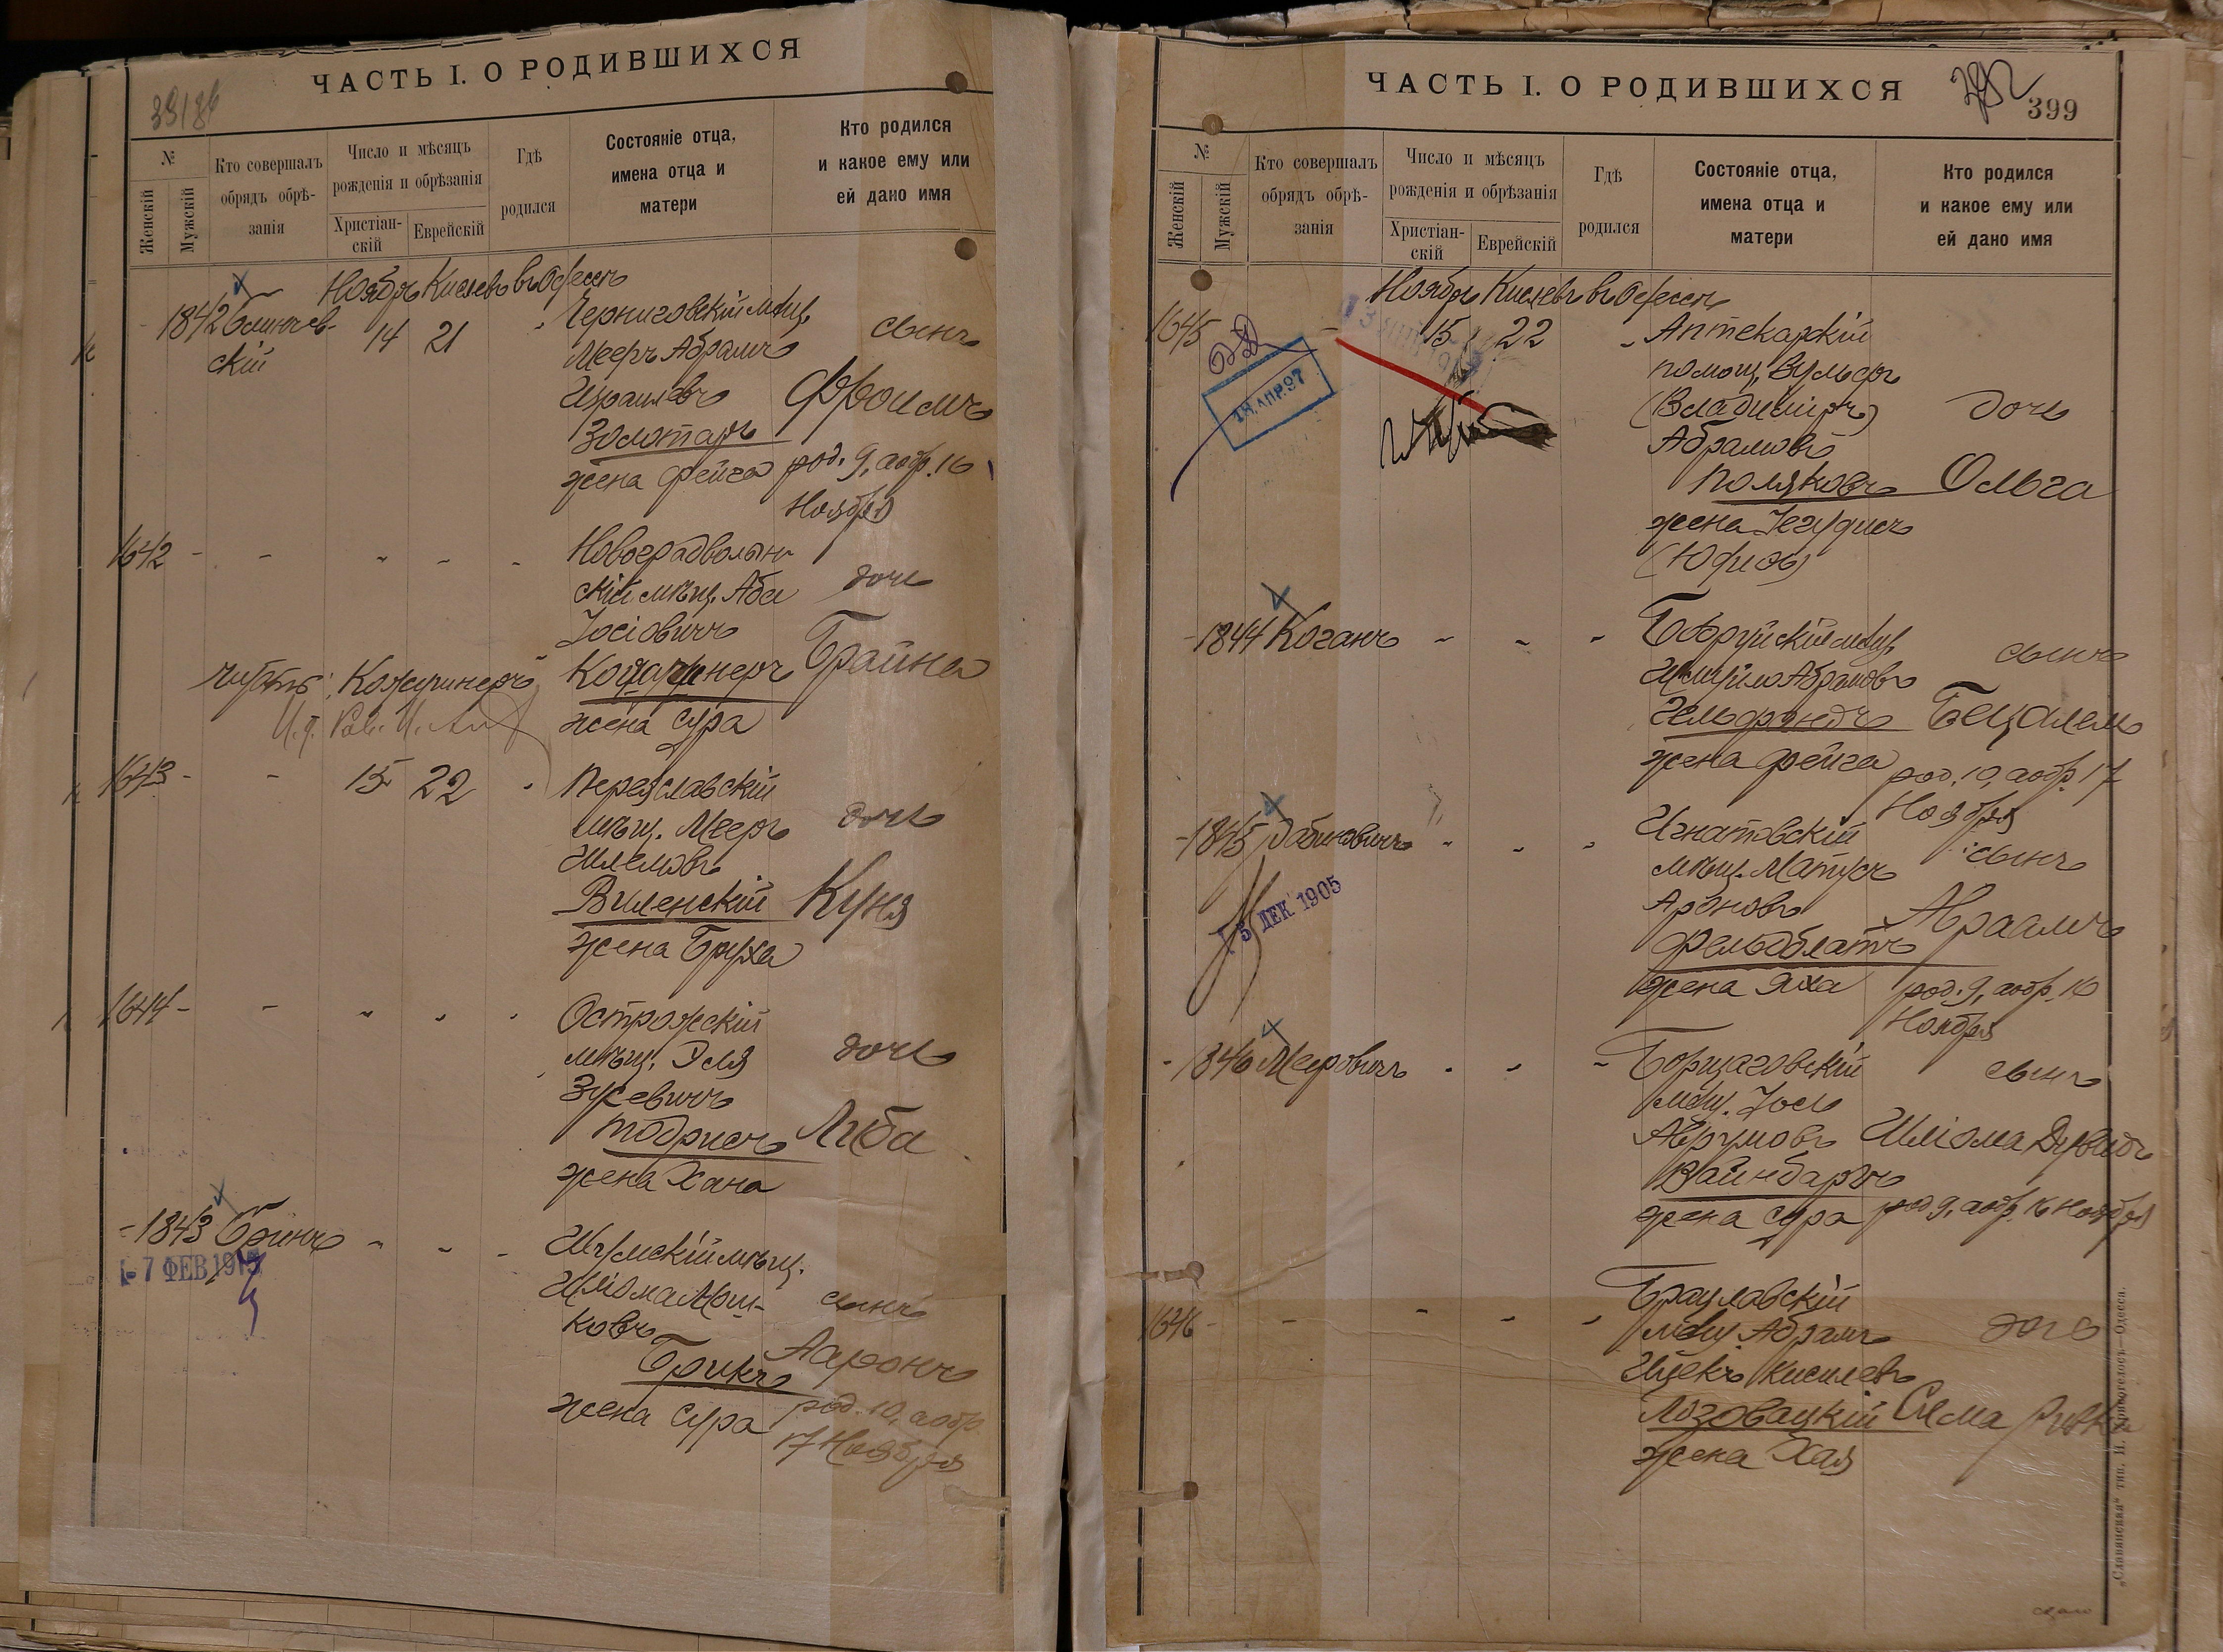 ЧАСТЬ I. О РОДИВШИХСЯ
№
Женскій
Мужскій
Кто совершалъ
обрядъ обрѣ-
занія
Число и мѣсяцъ
рожденія и обрѣзанія
Христіан-
скій
Еврейскій
Гдѣ
родился
Состояніе отца,
имена отца и
матери
Кто родился
и какое ему или
ей дано имя
Ноябрь Кислевъ въ Одессѣ
1842
скій
14 21
Черниговскій мѣщ.
Мееръ Абрамъ
Израилевъ
Золотарь
жена Фейга
сынъ
Фроимъ
род. 9, а обр. 16
Ноября
1642 - - " " "
Новоградволын-
скій мѣщ. Аба
Іосіовичъ
жена Сура
дочь
Брайна
читать: „Кожушнеръ“
1643 - - 15 22 "
Переяславскій
мѣщ. Мееръ
Шлемовъ
Виленскій
жена Бруха
дочь
Куня
1644 - - " " "
Острожскій
мѣщ. Эля
Зусевичъ
жена Хана
дочь
Либа
- 1843 " " "
Шумскій мѣщ.
Шлiома Мош-
ковъ
Брикъ
жена Сура
сынъ
Ааронъ
род. 10, а обр.
17 Ноября
7 ФЕВ 191
ЧАСТЬ I. О РОДИВШИХСЯ
399
№
Женскій
Мужскій
Кто совершалъ
обрядъ обрѣ-
занія
Число и мѣсяцъ
рожденія и обрѣзанія
Христіан-
скій
Еврейскій
Гдѣ
родился
Состояніе отца,
имена отца и
матери
Кто родился
и какое ему или
ей дано имя
Ноябрь Кислевъ въ Одессѣ
1645 - 15 22 "
18 АПР. 97
Аптекарскій
помощ. Вульфъ
(Владиміръ)
Абрамовъ
Поляковъ
жена Іегудисъ
(Юдифь)
дочь
Ольга
- 1844 Коганъ " " "
Бобруйскій мѣщ.
Шмуйло Абрамовъ
Гельфандъ
жена Фейга
сынъ
Бецалель
род. 10, а обр. 17
Ноября
- 1845 Рабиновичъ " " "
5 ДЕК 1905
Игнатовскій
мѣщ. Матусъ
Ароновъ
Фельдблатъ
жена Яха
сынъ
Авраамъ
род. 9, а обр. 16
Ноября
- 1846 Меировичъ " " "
Борщаговскій
мѣщ. Іось
Аврумовъ
Вайнбаргъ
жена Сура
сынъ
Шліома Дувидъ
род 9, а обр. 16 Ноября
1646 - - " " "
Брацлавскій
мѣщ. Абрамъ
Ицекъ Кисилевъ
Лозовацкій
жена Хая
дочь
Сима Ривка
„Славянская“ тип. Н. Хрисогелосъ—Одесса.